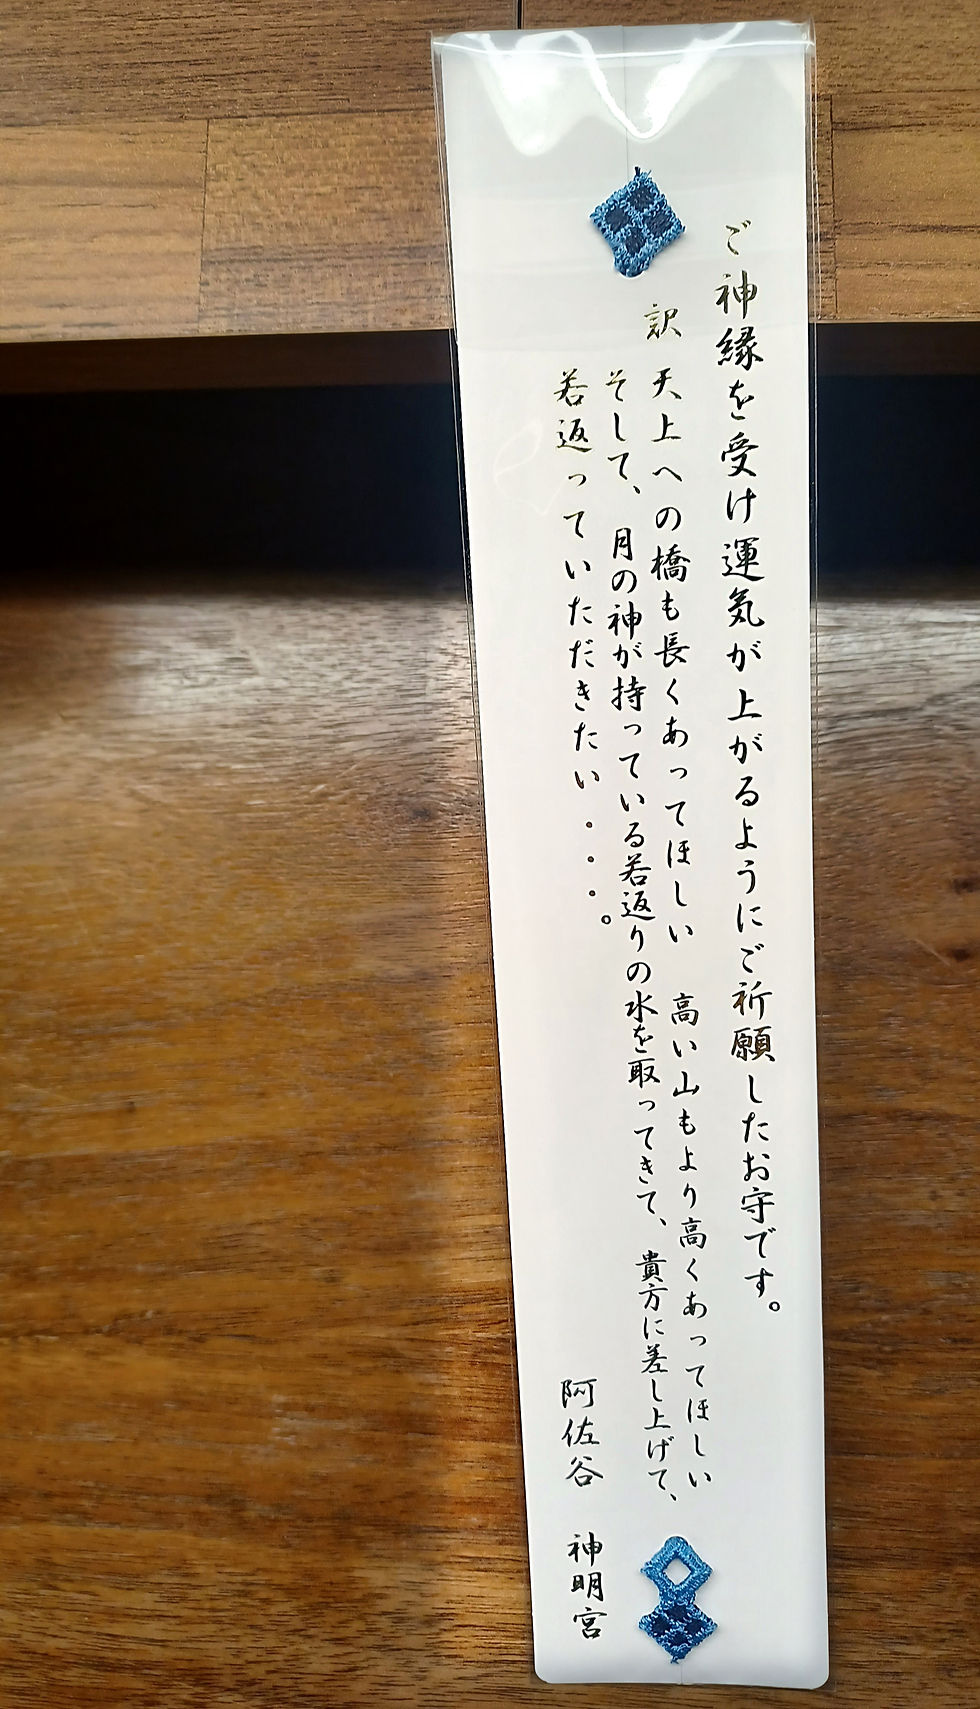 ご神縁を受け運気が上がるようにご祈願したお守です。
訳 天上への橋も長くあってほしい 高い山もより高くあってほしい
そして、月の神が持っている若返りの水を取ってきて、貴方に差し上げて、
若返っていただきたい・・・。
阿佐谷 神明宮